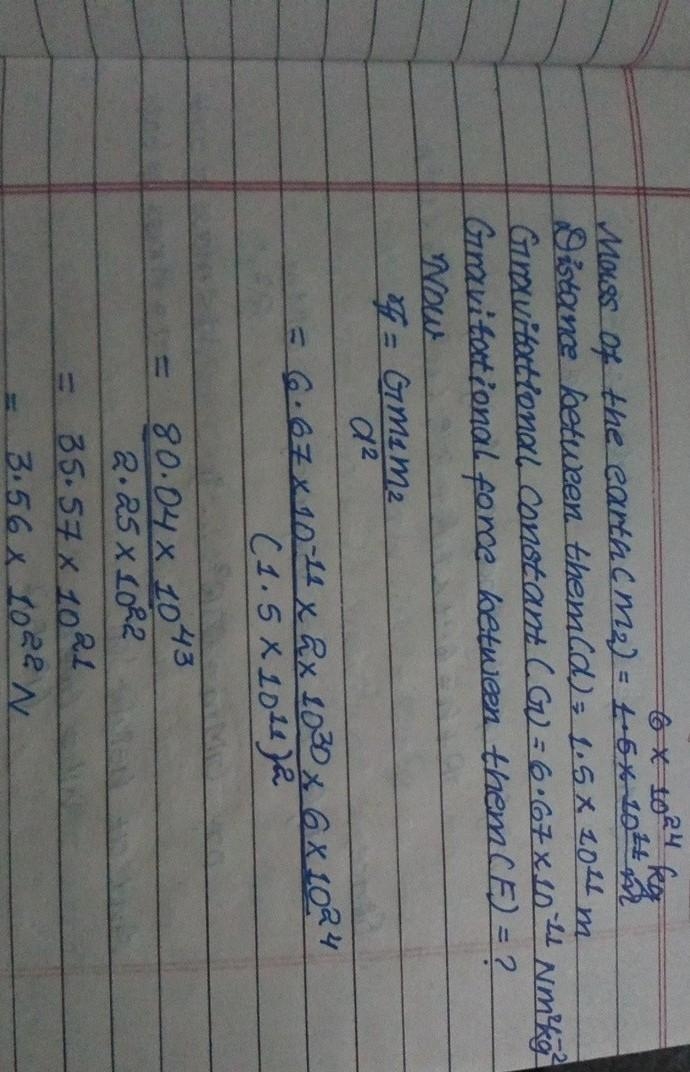 6 × 10²⁴ kg
Mass of the earth (m₂) = 1.5 × 10¹¹ m
Distance between them (d) = 1.5 × 10¹¹ m
Gravitational constant (G) = 6.67 × 10⁻¹¹ Nm²kg⁻²
Gravitational force between them (F) = ?
Now
F = Gm₁m₂
d²
= 6.67 × 10⁻¹¹ × 2 × 10³⁰ × 6 × 10²⁴
(1.5 × 10¹¹)²
= 80.04 × 10⁴³
2.25 × 10²²
= 35.57 × 10²¹
= 3.56 × 10²² N